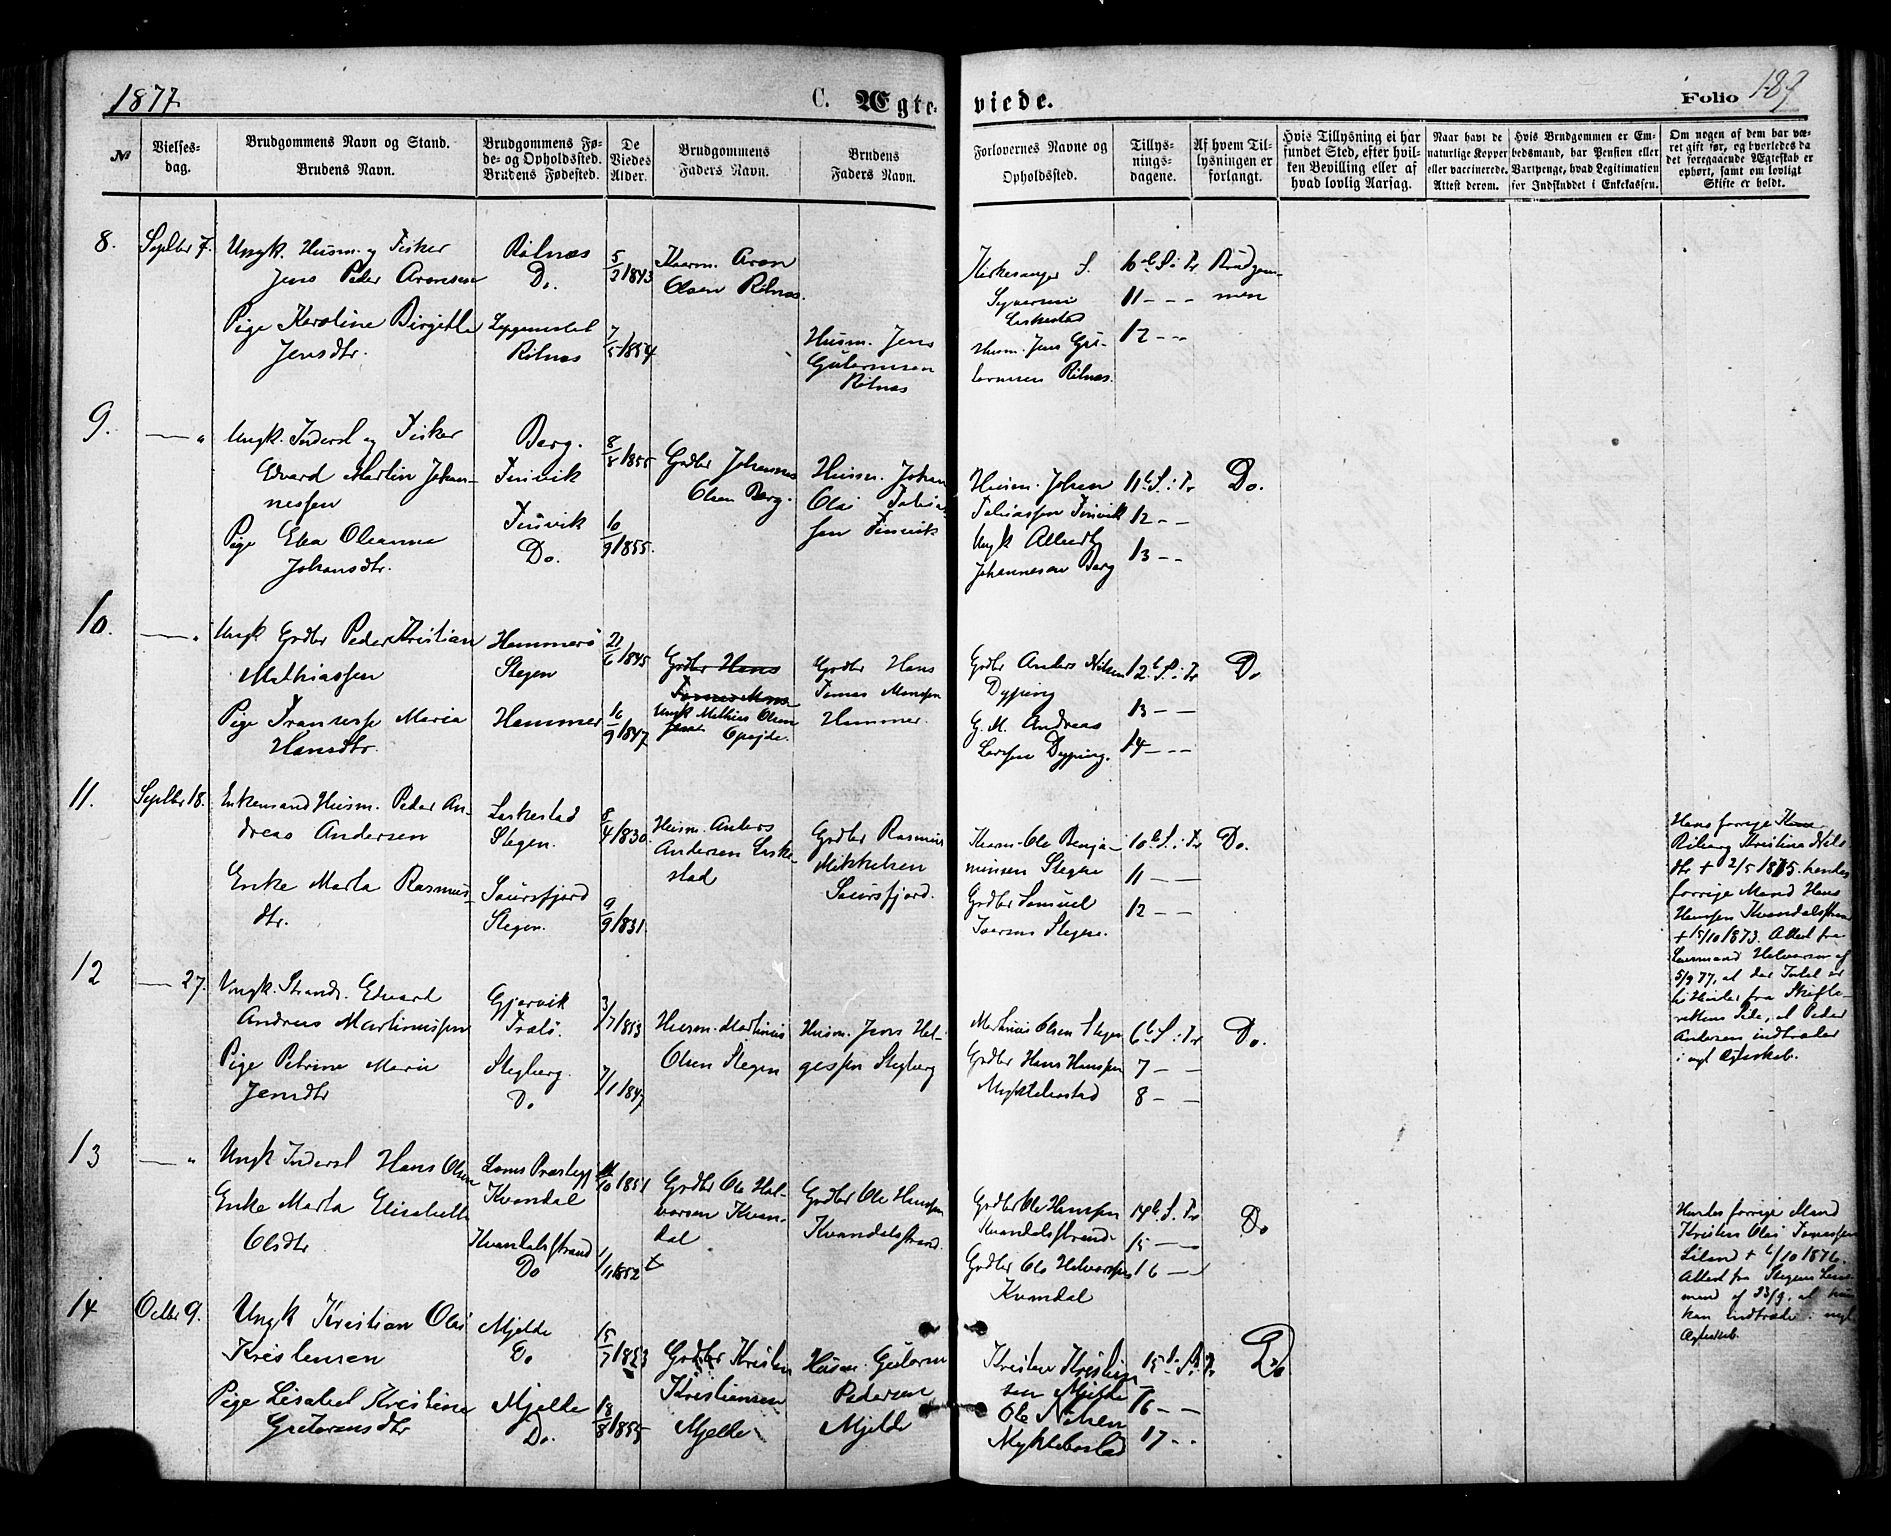 1877
C. Ægte-
viede.
Folio 187
№
Vielses-
dag.
Brudgommens Navn og Stand.
Brudens Navn.
Brudgommens Fø-
de- og Opholdssted.
Brudens Fødested.
De
Viedes
Alder.
Brudgommens
Faders Navn.
Brudens
Faders Navn.
Forlovernes Navne og
Opholdssted.
Tillys-
nings-
dagene.
Af hvem Til-
lysningen er
forlangt.
Hvis Tillysning ei har
fundet Sted, efter hvil-
ken Bevilling eller af
hvad lovlig Aarsag.
Naar havt de
naturlige Kopper
eller vaccinerede.
Attest derom.
Hvis Brudgommen er Em-
bedsmand, har Pension eller
Vartpenge, hvad Legitimation
for Indskuddet i Enkekassen.
Om nogen af dem har væ-
ret gift før, og hvorledes da
det foregaaende Ægteskab er
ophørt, samt om lovligt
Skifte er holdt.
8.
Septbr 7.
Ungk. Husm. og Fisker
Jens Peder Aronsen
Pige Karoline Birgitte
Jensdtr.
Rølnæs
Do.
Rølnæs
5/2 1843
7/5 1854
Aron
Olsen Rølnæs.
Husm. Jens
Gutormsen
Rølnæs
Kirkesanger S.
Leskestad
Husm. Jens Gu-
tormsen Rølnæs.
10de S. i Tr
11 - - -
12 - -
Brudgom-
men
9.
— "
Ungk. Inderst og Fisker
Edvard Martin Johan-
nessen
Pige Elea Oleanna
Johansdtr.
Berg.
Finvik
Finvik
Do.
8/8 1855
10/9 1855.
Gdbr Johannes
Olsen Berg.
Husm. Johan
Olai Tobia-
sen Finvik
Husm. Johan
Tobiassen Finvik
Ungk
Johannesen Berg
11te S. i Tr
12 - -
13 - -
Do.
10.
— "
Ungk Grdbr Peder Kristian
Mathiassen
Pige Maria
Hansdtr.
Hammerø
Stegen
Hammer
21/6 1845
16/9 1847
Grdbr Hans
Ungk Mathias Olsen
Grdbr Hans
Monsen
Hammer.
Grdbr Anders Nilsen
Dyping
G. M. Andreas
Larssen Dyping.
12te S. i Tr
13 - -
14 - - -
Do
11.
Septbr 18.
Enkemand Husm. Peder An-
dreas Andersen
Enke Marta Rasmus-
dtr.
Leskestad
Stegen.
Saursfjord
Stegen.
8/4 1830.
9/9 1831.
Husm. Anders
Andersen Leske-
stad
Grdbr Rasmus
Mikkelsen
Saursfjord.
Ole Benja-
minsen Stegen
Grdbr Samuel
Iversen Stegen.
10de S. i Tr
11 - -
12 - -
Do.
Hans forrige Kone
Kristina Nils
dtr + 2/5 1875. hendes
forrige Mand Hans
Hanssen Kvandalsstrand
+ 15/10 1873. Attest fra
Lensmand Halvorsen af
5/9 77, at der Intet er
til Hinder fra Skifte-
rettens Side, at Peder
Andersen indtræder
i nyt Ægteskab.
12
— 27.
Ungk. Strands. Edvard
Andreas Martinussen
Pige Petrine Marie
Jensdtr
Gjørvik
Stegberg.
Do
3/7 1853
7/1 1847
Husm. Martinus
Olsen Stegen
Husm. Jens Hel-
gessen Stegberg
Martinus Olsen Stegen
Grdbr Hans Hanssen
Myklebostad
6te S. i Tr
7 - -
8 - -
Do.
13
— "
Ungk Inderst Hans Olsen
Enke Marta Elisabeth
Olsdtr
Loms Præstegj
Kvandal
Kvandalsstrand
Do
10 1851
1/11 1852
Grdbr Ole Hal-
vorsen Kvan-
dal
Grdbr Ole Hanssen
Kvandalsstrand.
Grdbr Ole Hanssen
Kvandalsstrand
Grdbr Ole Halvorssen
Kvandal
14de S. i Tr
15 - -
16 - -
Do
Hendes forrige Mand
Kristen Olai Tomassen
+ 6/10 1876.
Attest fra Stegens Lens-
mand af 23/9, at hun
kan indtræde i nyt
Ægteskab.
14
Octbr 9.
Ungk Kristian Olai
Kristensen
Pige Lisabet Kristine
Gutormsdtr
Mjelde
Do
Mjelde
Do.
15/7 1853
18/8 1855
Grdbr Kristen
Kristiansen
Mjelde
Husm. Gutorm
Pedersen
Mjelde
Kristen Kristian-
sen Mjelde
Ole Nilsen
Myklebostad
15de S. i Tr.
16 - -
17 - -
Do.